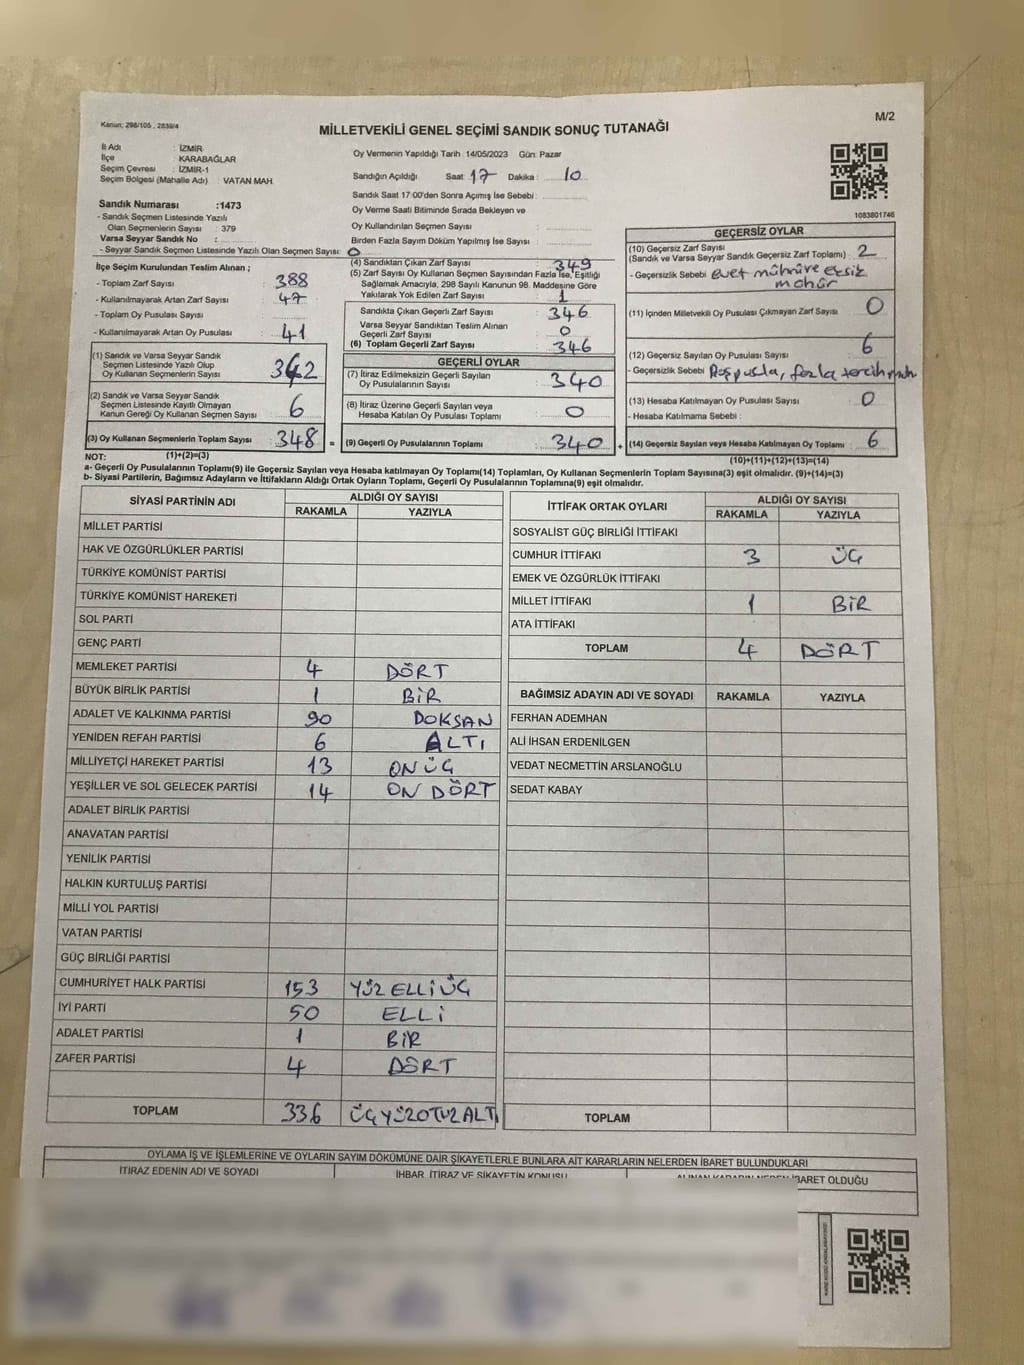 Kanun; 298/105 , 2839/4
M/2
MİLLETVEKİLİ GENEL SEÇİMİ SANDIK SONUÇ TUTANAĞI
İl Adı : İZMİR
İlçe : KARABAĞLAR
Seçim Çevresi : İZMİR-1
Seçim Bölgesi (Mahalle Adı) : VATAN MAH.
Oy Vermenin Yapıldığı Tarih :14/05/2023 Gün: Pazar
Sandığın Açıldığı Saat : 17 Dakika : 10
Sandık Saat 17:00'den Sonra Açımış İse Sebebi :
Oy Verme Saati Bitiminde Sırada Bekleyen ve
Oy Kullandırılan Seçmen Sayısı
Birden Fazla Sayım Döküm Yapılmış İse Sayısı :
1083801746
Sandık Numarası :1473
- Sandık Seçmen Listesinde Yazılı
Olan Seçmenlerin Sayısı : 379
Varsa Seyyar Sandık No :
- Seyyar Sandık Seçmen Listesinde Yazılı Olan Seçmen Sayısı: 0
İlçe Seçim Kurulundan Teslim Alınan ;
- Toplam Zarf Sayısı : 388
- Kullanılmayarak Artan Zarf Sayısı : 47
- Toplam Oy Pusulası Sayısı :
- Kullanılmayarak Artan Oy Pusulası : 41
(1) Sandık ve Varsa Seyyar Sandık
Seçmen Listesinde Yazılı Olup
Oy Kullanan Seçmenlerin Sayısı : 342
(2) Sandık ve Varsa Seyyar Sandık
Seçmen Listesinde Kayıtlı Olmayan
Kanun Gereği Oy Kullanan Seçmen Sayısı : 6
(3) Oy Kullanan Seçmenlerin Toplam Sayısı : 348 =
(1)+(2)=(3)
(4) Sandıktan Çıkan Zarf Sayısı : 349
(5) Zarf Sayısı Oy Kullanan Seçmen Sayısından Fazla İse, Eşitliği
Sağlamak Amacıyla, 298 Sayılı Kanunun 98. Maddesine Göre
Yakılarak Yok Edilen Zarf Sayısı : 1
Sandıkta Çıkan Geçerli Zarf Sayısı : 346
Varsa Seyyar Sandıktan Teslim Alınan
Geçerli Zarf Sayısı : 0
(6) Toplam Geçerli Zarf Sayısı : 346
GEÇERLİ OYLAR
(7) İtiraz Edilmeksizin Geçerli Sayılan
Oy Pusulalarının Sayısı : 340
(8) İtiraz Üzerine Geçerli Sayılan veya
Hesaba Katılan Oy Pusulası Toplamı : 0
(9) Geçerli Oy Pusulalarının Toplamı : 340 +
GEÇERSİZ OYLAR
(10) Geçersiz Zarf Sayısı
(Sandık ve Varsa Seyyar Sandık Geçersiz Zarf Toplamı) : 2
- Geçersizlik Sebebi : evet mührü ve eksiz
mühür
(11) İçinden Milletvekili Oy Pusulası Çıkmayan Zarf Sayısı : 0
(12) Geçersiz Sayılan Oy Pusulası Sayısı : 6
- Geçersizlik Sebebi : fazla tercih
(13) Hesaba Katılmayan Oy Pusulası Sayısı : 0
- Hesaba Katılmama Sebebi :
(14) Geçersiz Sayılan veya Hesaba Katılmayan Oy Toplamı : 6
(10)+(11)+(12)+(13)=(14)
NOT:
a- Geçerli Oy Pusulalarının Toplamı(9) ile Geçersiz Sayılan veya Hesaba katılmayan Oy Toplamı(14) Toplamları, Oy Kullanan Seçmenlerin Toplam Sayısına(3) eşit olmalıdır. (9)+(14)=(3)
b- Siyasi Partilerin, Bağımsız Adayların ve İttifakların Aldığı Ortak Oyların Toplamı, Geçerli Oy Pusulalarının Toplamına(9) eşit olmalıdır.
SİYASİ PARTİNİN ADI ALDIĞI OY SAYISI
RAKAMLA YAZIYLA
MİLLET PARTİSİ
HAK VE ÖZGÜRLÜKLER PARTİSİ
TÜRKİYE KOMÜNİST PARTİSİ
TÜRKİYE KOMÜNİST HAREKETİ
SOL PARTİ
GENÇ PARTİ
MEMLEKET PARTİSİ 4 DÖRT
BÜYÜK BİRLİK PARTİSİ 1 BİR
ADALET VE KALKINMA PARTİSİ 90 DOKSAN
YENİDEN REFAH PARTİSİ 6 ALTI
MİLLİYETÇİ HAREKET PARTİSİ 13 ONÜÇ
YEŞİLLER VE SOL GELECEK PARTİSİ 14 ON DÖRT
ADALET BİRLİK PARTİSİ
ANAVATAN PARTİSİ
YENİLİK PARTİSİ
HALKIN KURTULUŞ PARTİSİ
MİLLİ YOL PARTİSİ
VATAN PARTİSİ
GÜÇ BİRLİĞİ PARTİSİ
CUMHURİYET HALK PARTİSİ 153 YÜZ ELLİ ÜÇ
İYİ PARTİ 50 ELLİ
ADALET PARTİSİ 1 BİR
ZAFER PARTİSİ 4 DÖRT
TOPLAM 336 ÜÇYÜZOTUZALTI
İTTİFAK ORTAK OYLARI ALDIĞI OY SAYISI
RAKAMLA YAZIYLA
SOSYALİST GÜÇ BİRLİĞİ İTTİFAKI
CUMHUR İTTİFAKI 3 ÜÇ
EMEK VE ÖZGÜRLÜK İTTİFAKI
MİLLET İTTİFAKI 1 BİR
ATA İTTİFAKI
TOPLAM 4 DÖRT
BAĞIMSIZ ADAYIN ADI VE SOYADI RAKAMLA YAZIYLA
FERHAN ADEMHAN
ALİ İHSAN ERDENİLGEN
VEDAT NECMETTİN ARSLANOĞLU
SEDAT KABAY
TOPLAM
OYLAMA İŞ VE İŞLEMLERİNE VE OYLARIN SAYIM DÖKÜMÜNE DAİR ŞİKAYETLERLE BUNLARA AİT KARARLARIN NELERDEN İBARET BULUNDUKLARI
İTİRAZ EDENİN ADI VE SOYADI İHBAR, İTİRAZ VE ŞİKAYETİN KONUSU ALINAN KARARIN NEDEN İBARET OLDUĞU